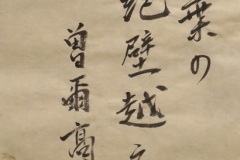 葉の
絶壁越え
曽爾高